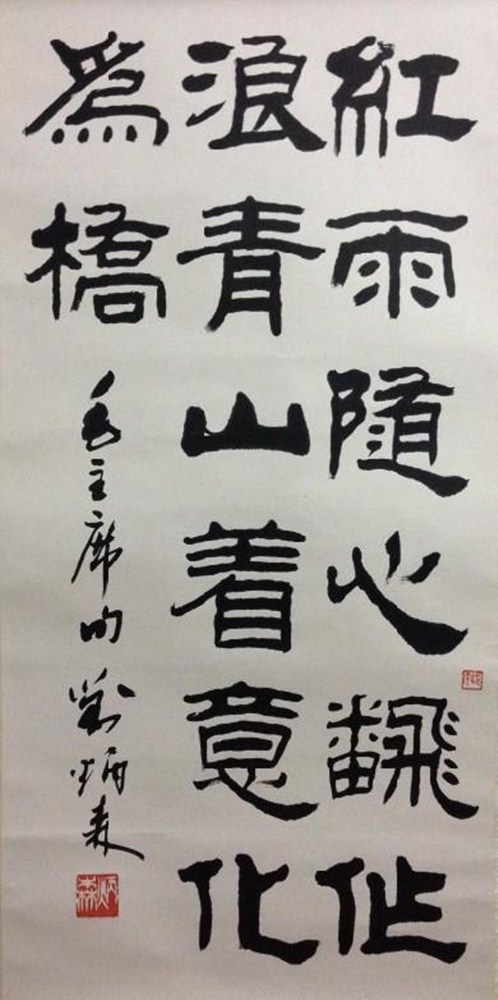 紅雨隨心飜作
浪青山着意化
爲橋
毛主席句劉炳森
炳森